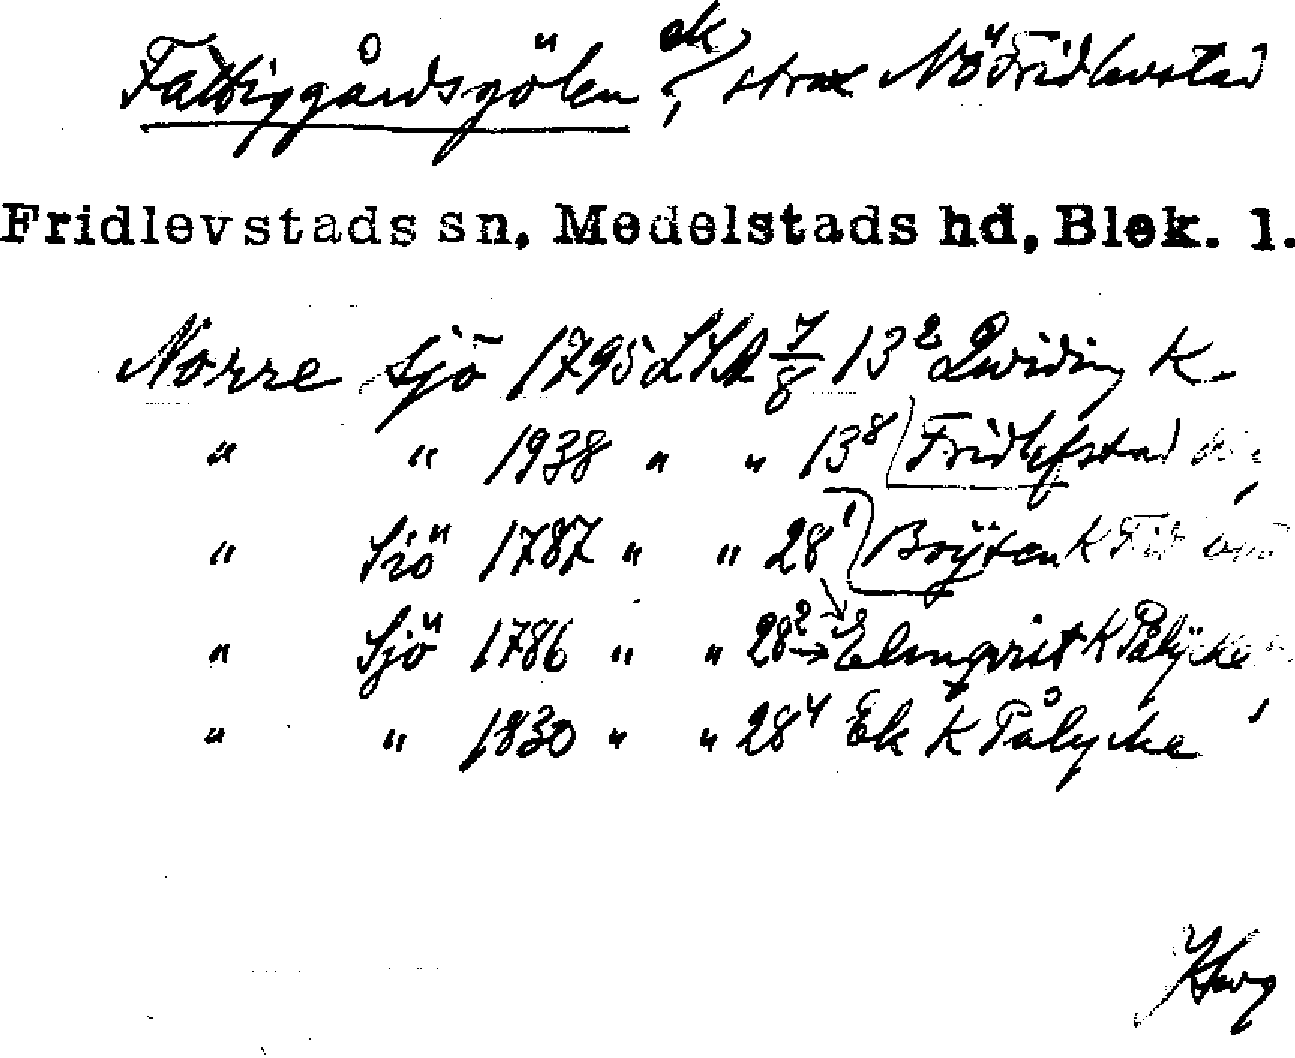 Fattiggårdsgölen ek, strax NÖ Fridlevstad
Fridlevstads sn, Medelstads hd, Blek. l.
Norre sjö 1795 LSA 7/8 13² Qwiding K
" " 1938 " " 13⁸ Fridlefstad
" Siö 1787 " " 28¹ Böÿten K
" Sjö 1786 " " 28² → Elmqvist K Pålÿcke
" " 1830 " " 28⁴ Ek K Pålycke